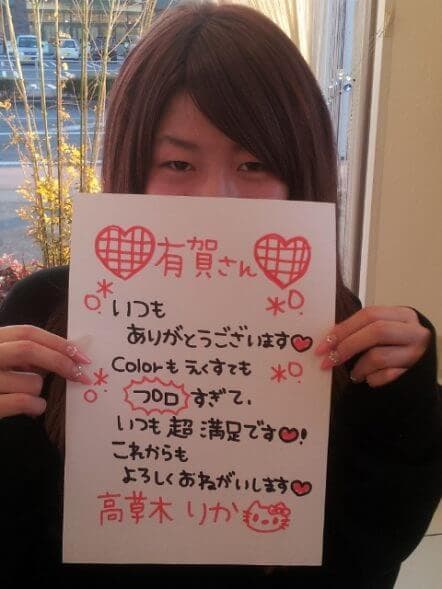 有賀さん
いつも
ありがとうございます♥
Colorも えくすても
プロ すぎて、
いつも 超 満足です♥!
これからも
よろしくおねがいします♥
高草木 りか